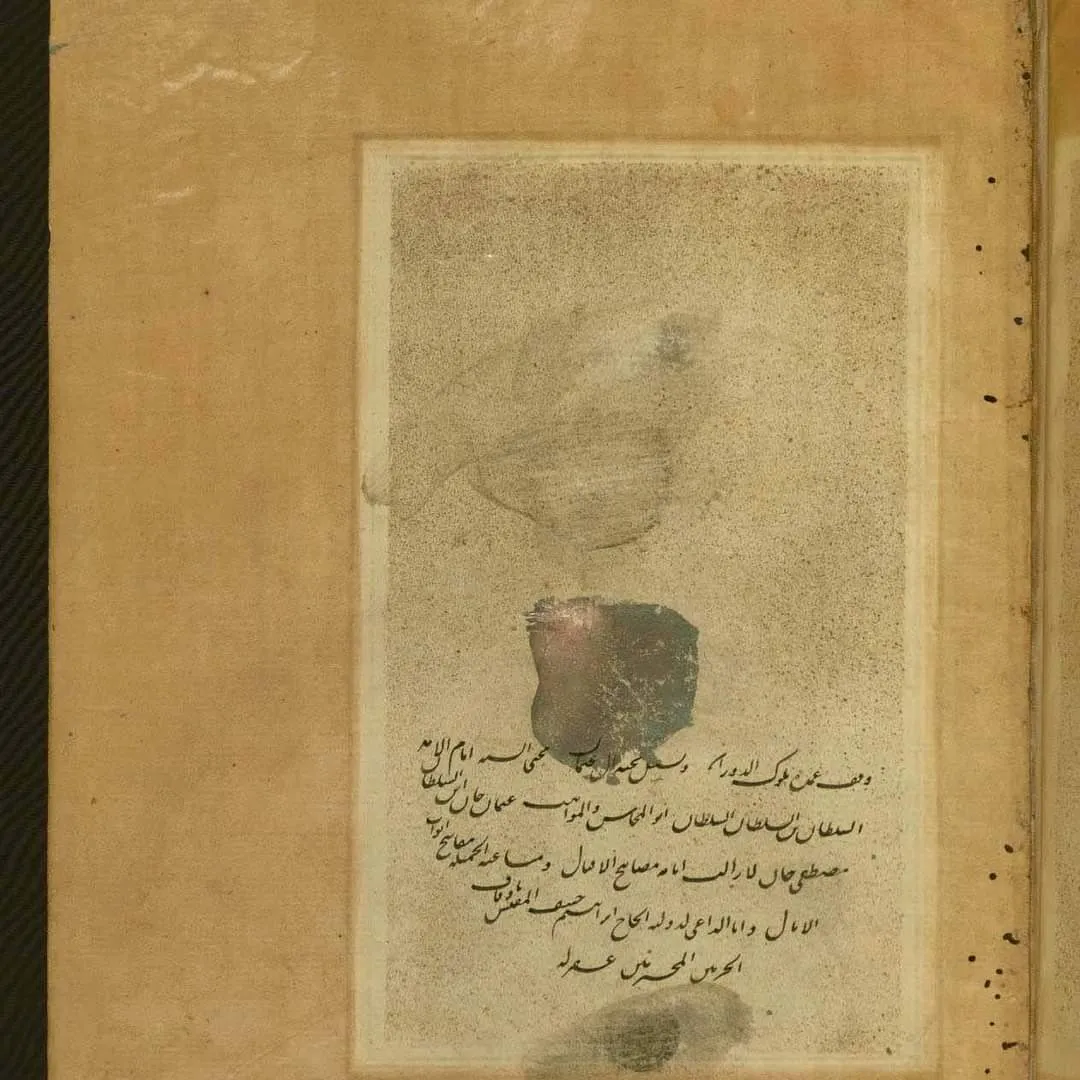 وقف عمدة ملوك الدوران وسلسل نجمه ال عثمان محيى السنه امام الامه
السلطان بن السلطان السلطان ابو المحاسن والمواهب عثمان خان ابن السلطان
مصطفى خان لا زالت ايامه مصابيح الاقبال ومساعيه الجميله مفاتيح ابواب
الامال وانا الداعى لدولته الحاج ابراهيم حنيف المفتش باوقاف
الحرمين المحترمين غفر له